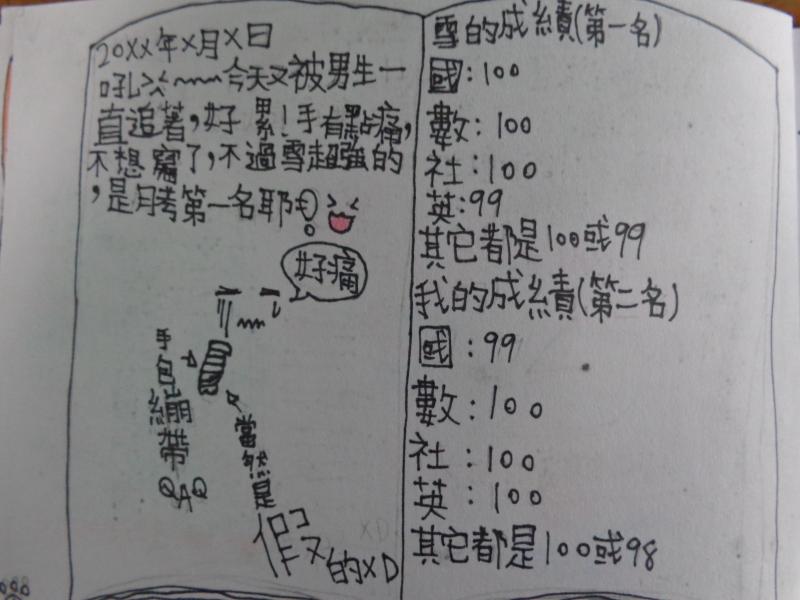 20XX年X月X日
吼>︿<~~~~今天又被男生一
直追著,好累!手有點痛,
不想寫了,不過雪超強的
,是月考第一名耶!
好痛
手包繃帶
QAQ
當然是
假的XD
XD
雪的成績(第一名)
國:100
數:100
社:100
英:99
其它都是100或99
我的成績(第二名)
國:99
數:100
社:100
英:100
其它都是100或98